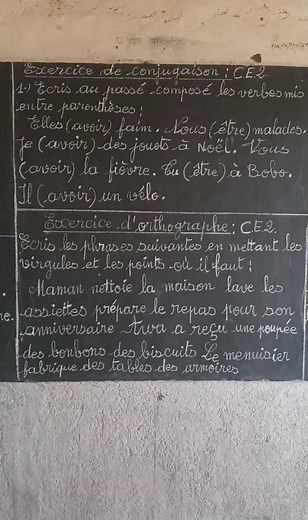 Exercice de conjugaison : CE2
1-) Ecris au passé composé les verbes mis
entre parenthèses :
Elles (avoir) faim. Nous (être) malades.
Je (avoir) des jouets à Noël. Vous
(avoir) la fièvre. Tu (être) à Bobo.
Il (avoir) un vélo.
Exercice d'orthographe : CE2
Ecris les phrases suivantes en mettant les
virgules et les points où il faut :
Maman nettoie la maison lave les
assiettes prépare le repas pour son
anniversaire Awa a reçu une poupée
des bonbons des biscuits Le menuisier
fabrique des tables des armoires